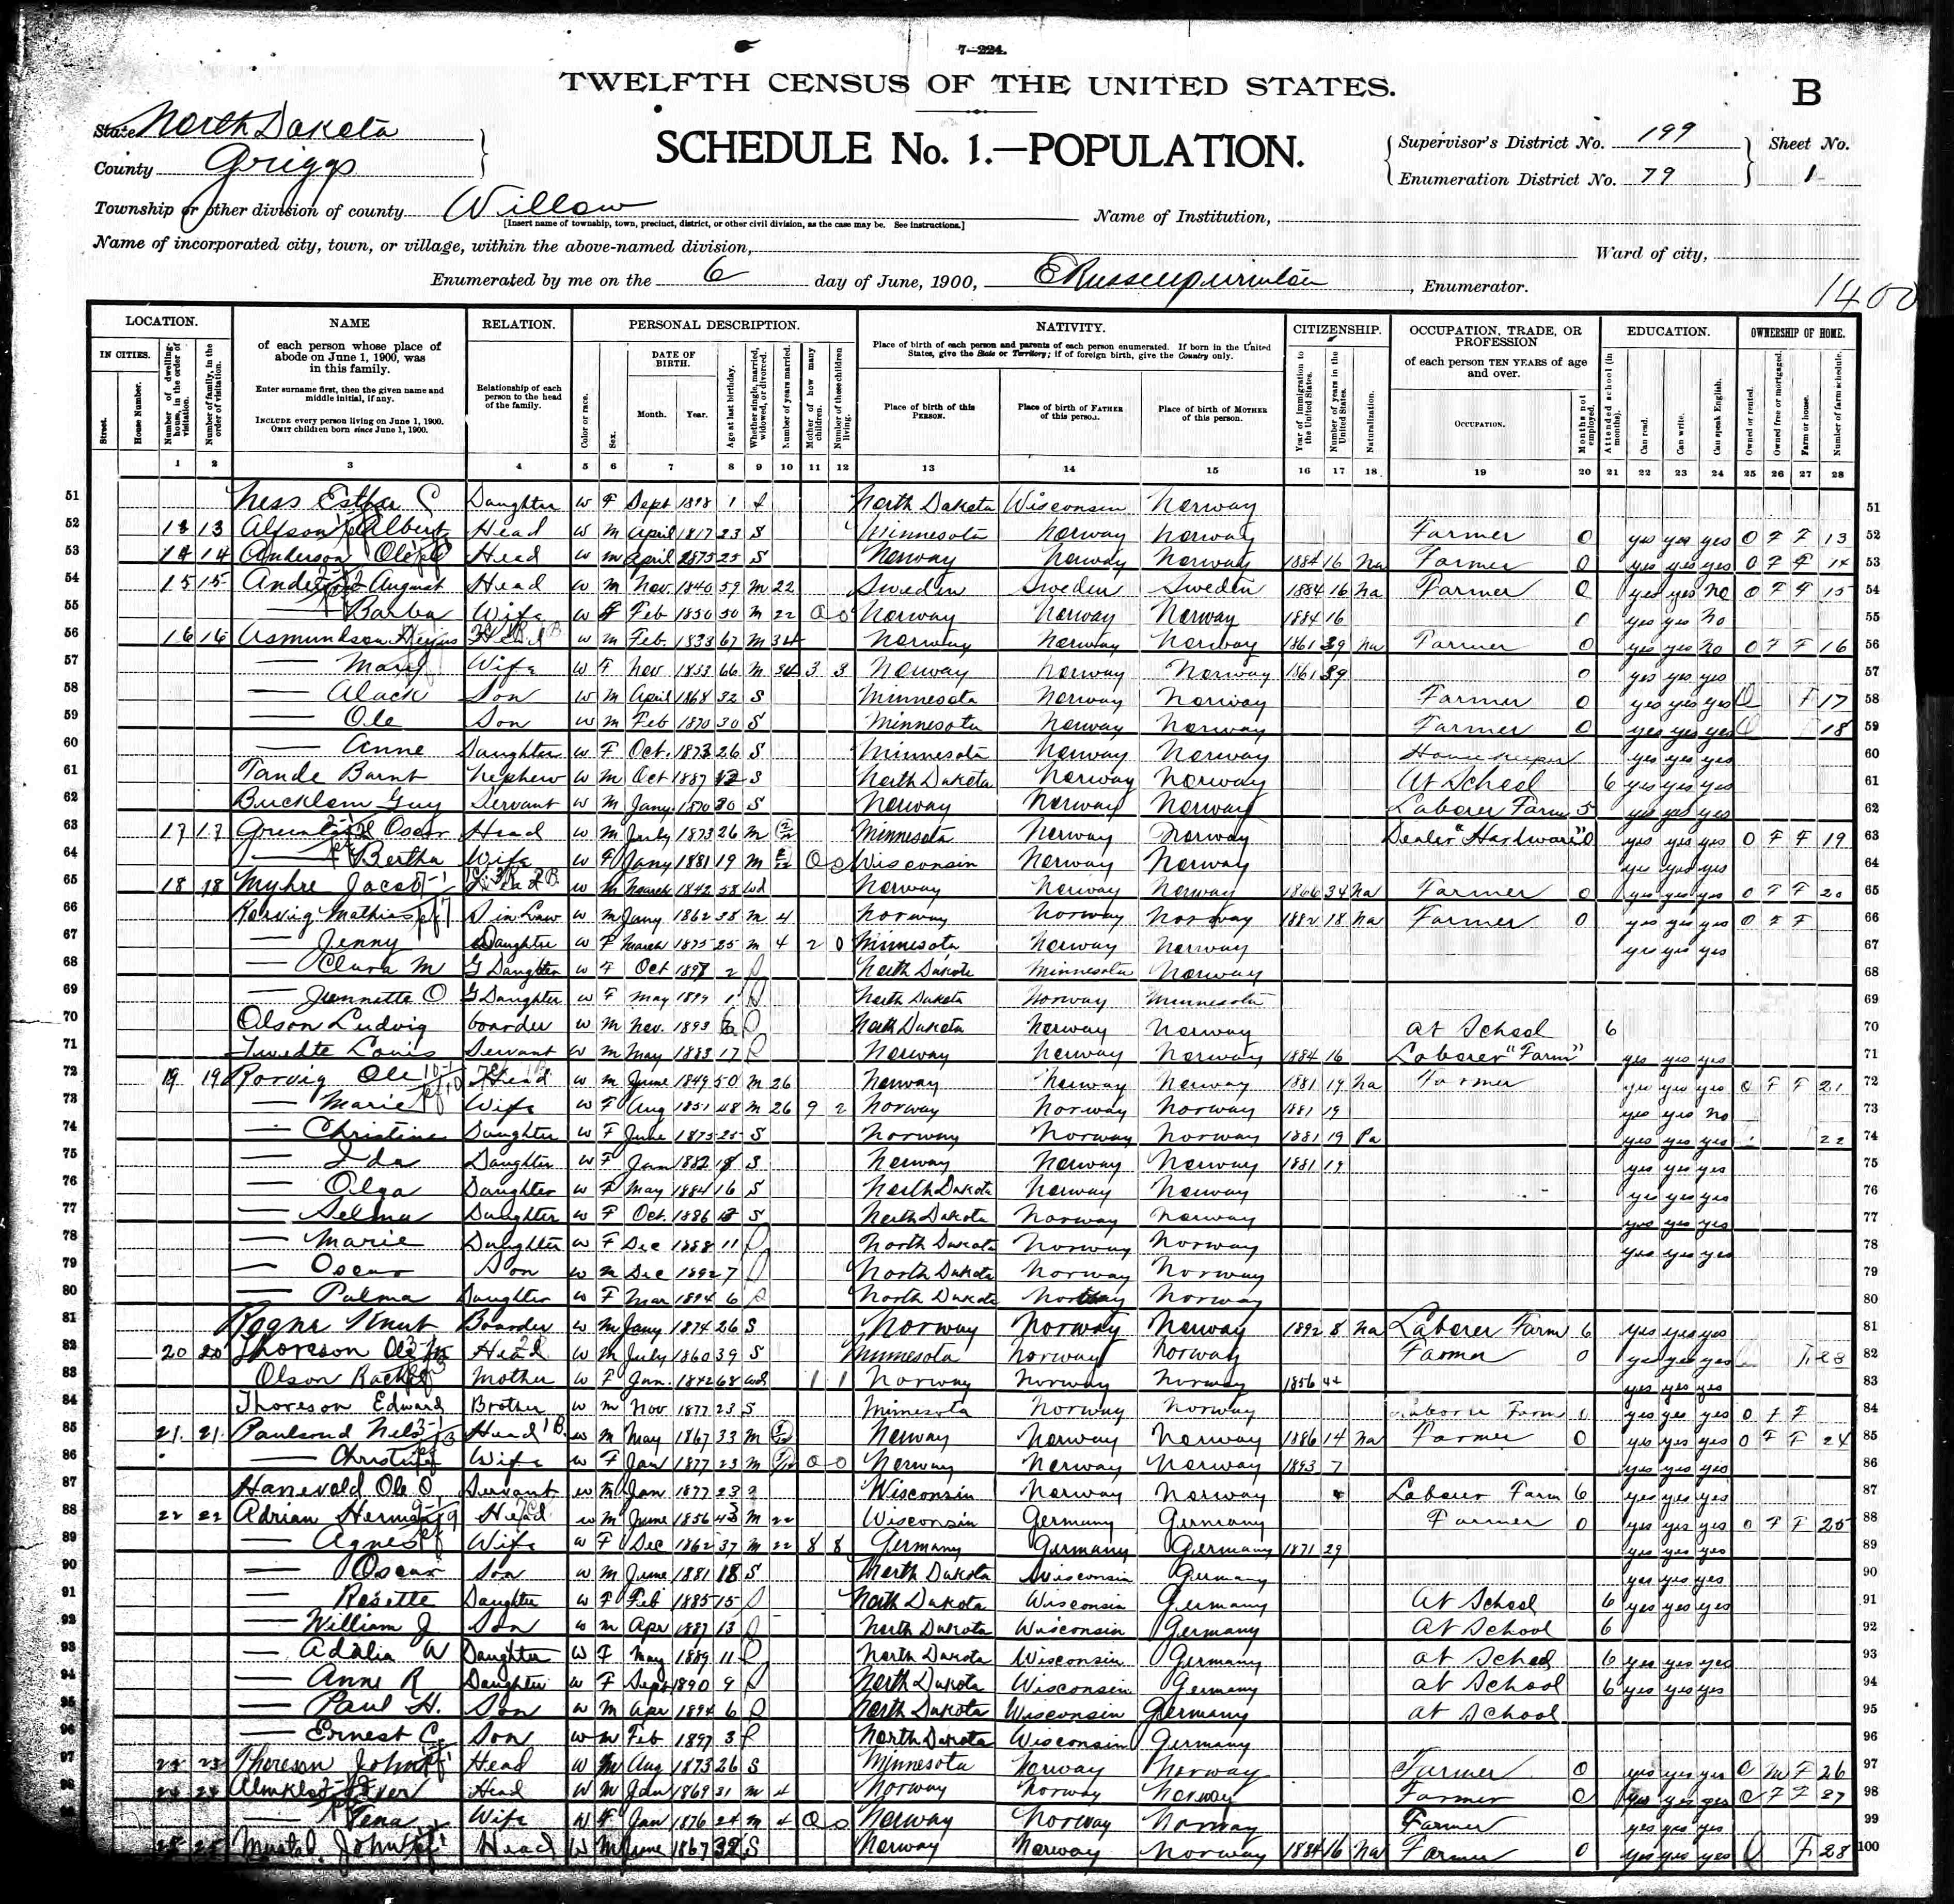 7—224.
TWELFTH CENSUS OF THE UNITED STATES.
B
State North Dakota
SCHEDULE No. 1.—POPULATION.
Supervisor's District No. 199
Sheet No.
County Griggs
Enumeration District No. 79
1
Township or other division of county Willow
[Insert name of township, town, precinct, district, or other civil division, as the case may be. See instructions.]
Name of Institution,
Name of incorporated city, town, or village, within the above-named division,
Ward of city,
Enumerated by me on the 6 day of June, 1900, , Enumerator.
1400
LOCATION. NAME RELATION. PERSONAL DESCRIPTION. NATIVITY. CITIZENSHIP. OCCUPATION, TRADE, OR PROFESSION EDUCATION. OWNERSHIP OF HOME.
IN CITIES. Street. House Number. Number of dwelling-house, in the order of visitation. Number of family, in the order of visitation.
of each person whose place of abode on June 1, 1900, was in this family.
Enter surname first, then the given name and middle initial, if any.
INCLUDE every person living on June 1, 1900.
OMIT children born since June 1, 1900.
Relationship of each person to the head of the family.
Color or race. Sex. DATE OF BIRTH. Month. Year. Age at last birthday. Whether single, married, widowed, or divorced. Number of years married. Mother of how many children. Number of these children living.
Place of birth of each person and parents of each person enumerated. If born in the United States, give the State or Territory; if of foreign birth, give the Country only.
Place of birth of this PERSON. Place of birth of FATHER of this person. Place of birth of MOTHER of this person.
Year of immigration to the United States. Number of years in the United States. Naturalization.
of each person TEN YEARS of age and over.
OCCUPATION. Months not employed.
Attended school (in months). Can read. Can write. Can speak English.
Owned or rented. Owned free or mortgaged. Farm or house. Number of farm schedule.
1 2 3 4 5 6 7 8 9 10 11 12 13 14 15 16 17 18 19 20 21 22 23 24 25 26 27 28
51 Ness Daughter W F Sept 1898 1 S North Dakota Wisconsin Norway 51
52 13 13 Alfson Albert Head W M April 23 S Minnesota Norway Norway Farmer 0 yes yes yes O F F 13 52
53 14 14 Anderson Ole Head W M April 1875 25 S Norway Norway Norway 1884 16 Na Farmer 0 yes yes yes O F F 14 53
54 15 15 August Head W M Nov. 1840 59 M 22 Sweden Sweden Sweden 1884 16 Na Farmer 0 yes yes no O F F 15 54
55 — Wife W F Feb 1850 50 M 22 0 0 Norway Norway Norway 1884 16 0 yes yes no 55
56 16 16 Asmundson Head W M Feb. 1833 67 M 34 Norway Norway Norway 1861 39 Na Farmer 0 yes yes no O F F 16 56
57 — Mary Wife W F Nov 1833 66 M 34 3 3 Norway Norway Norway 1861 39 0 yes yes yes 57
58 — Son W M April 1868 32 S Minnesota Norway Norway Farmer 0 yes yes yes O F 17 58
59 — Ole Son W M Feb 1870 30 S Minnesota Norway Norway Farmer 0 yes yes yes O F 18 59
60 — Anne Daughter W F Oct. 1873 26 S Minnesota Norway Norway Housekeeper yes yes yes 60
61 Tande Nephew W M Oct 1887 12 S North Dakota Norway Norway At School 6 yes yes yes 61
62 Guy Servant W M Jany 1870 30 S Norway Norway Norway Laborer Farm 5 yes yes yes 62
63 17 17 Oscar Head W M July 1873 26 M Minnesota Norway Norway Dealer "Hardware" 0 yes yes yes O F F 19 63
64 — Bertha Wife W F Jany 1881 19 M 0 0 Wisconsin Norway Norway yes yes yes 64
65 18 18 Myhre Jacob W M March 1842 58 Wd Norway Norway Norway 1866 34 Na Farmer 0 yes yes yes O F F 20 65
66 Rorvig Mathias S in Law W M Jany 1862 38 M 4 Norway Norway Norway 1882 18 Na Farmer 0 yes yes yes O F F 66
67 — Jenny Daughter W F March 1875 25 M 4 2 0 Minnesota Norway Norway yes yes yes 67
68 — Clara M G Daughter W F Oct 1897 2 S North Dakota Minnesota Norway 68
69 — Jeannette O G Daughter W F May 1899 1 S North Dakota Norway Minnesota 69
70 Olson Ludvig boarder W M Nov. 1893 6 S North Dakota Norway Norway at School 6 70
71 Louis Servant W M May 1883 17 S Norway Norway Norway 1884 16 Laborer "Farm" yes yes yes 71
72 19 19 Rorvig Ole Head W M June 1849 50 M 26 Norway Norway Norway 1881 19 Na Farmer yes yes yes O F F 21 72
73 — Marie Wife W F Aug 1851 48 M 26 9 2 Norway Norway Norway 1881 19 yes yes no 73
74 — Christine Daughter W F June 1875 25 S Norway Norway Norway 1881 19 Pa yes yes yes 22 74
75 — Ida Daughter W F Jan 1882 18 S Norway Norway Norway 1881 19 yes yes yes 75
76 — Olga Daughter W F May 1884 16 S North Dakota Norway Norway yes yes yes 76
77 — Selma Daughter W F Oct. 1886 S North Dakota Norway Norway yes yes yes 77
78 — Marie Daughter W F Dec 1888 11 S North Dakota Norway Norway yes yes yes 78
79 — Oscar Son W M Dec 1892 7 S North Dakota Norway Norway 79
80 — Palma Daughter W F Mar 1894 6 S North Dakota Norway Norway 80
81 Rogne Knut Boarder W M Jany 1874 26 S Norway Norway Norway 1892 8 Na Laborer Farm 6 yes yes yes 81
82 20 20 Thoreson Ole Head W M July 1860 39 S Minnesota Norway Norway Farmer 0 yes yes yes F 23 82
83 Olson Mother W F Jan. 1842 68 Wd 1 1 Norway Norway Norway 1856 44 yes yes yes 83
84 Thoreson Edward Brother W M Nov 1877 23 S Minnesota Norway Norway Laborer Farm 0 yes yes yes O F F 84
85 21 21 Nels Head W M May 1867 33 M Norway Norway Norway 1886 14 Na Farmer 0 yes yes yes O F F 24 85
86 — Wife W F Jan 1877 23 M 0 0 Norway Norway Norway 1893 7 yes yes yes 86
87 Hanevold Ole O. Servant W M Jan 1877 23 Wisconsin Norway Norway Laborer Farm 6 yes yes yes 87
88 22 22 Adrian Herman Head W M June 1856 43 M 22 Wisconsin Germany Germany Farmer 0 yes yes yes O F F 25 88
89 — Agnes Wife W F Dec 1862 37 M 22 8 8 Germany Germany Germany 1871 29 yes yes yes 89
90 — Oscar Son W M June 1881 18 S North Dakota Wisconsin Germany yes yes yes 90
91 — Rosette Daughter W F Feb 1885 15 S North Dakota Wisconsin Germany At School 6 yes yes yes 91
92 — William J Son W M Apr 1887 13 S North Dakota Wisconsin Germany At School 6 92
93 — Adalia W Daughter W F May 1889 11 S North Dakota Wisconsin Germany at School 6 yes yes yes 93
94 — Anne R Daughter W F Sept 1890 9 S North Dakota Wisconsin Germany at School 6 yes yes yes 94
95 — Paul H. Son W M Apr 1894 6 S North Dakota Wisconsin Germany at School 95
96 — Ernest C. Son W M Feb 1897 3 S North Dakota Wisconsin Germany 96
97 23 23 Thoreson John Head W M Aug 1873 26 S Minnesota Norway Norway Farmer 0 yes yes yes O M F 26 97
98 24 24 Iver Head W M Jan 1869 31 M 4 Norway Norway Norway Farmer 0 yes yes yes O F F 27 98
99 — Tena Wife W F Jan 1876 24 M 4 0 0 Norway Norway Norway Farmer yes yes yes 99
100 25 25 John Head W M June 1867 32 S Norway Norway Norway 1884 16 Na Farmer 0 yes yes yes O F 28 100